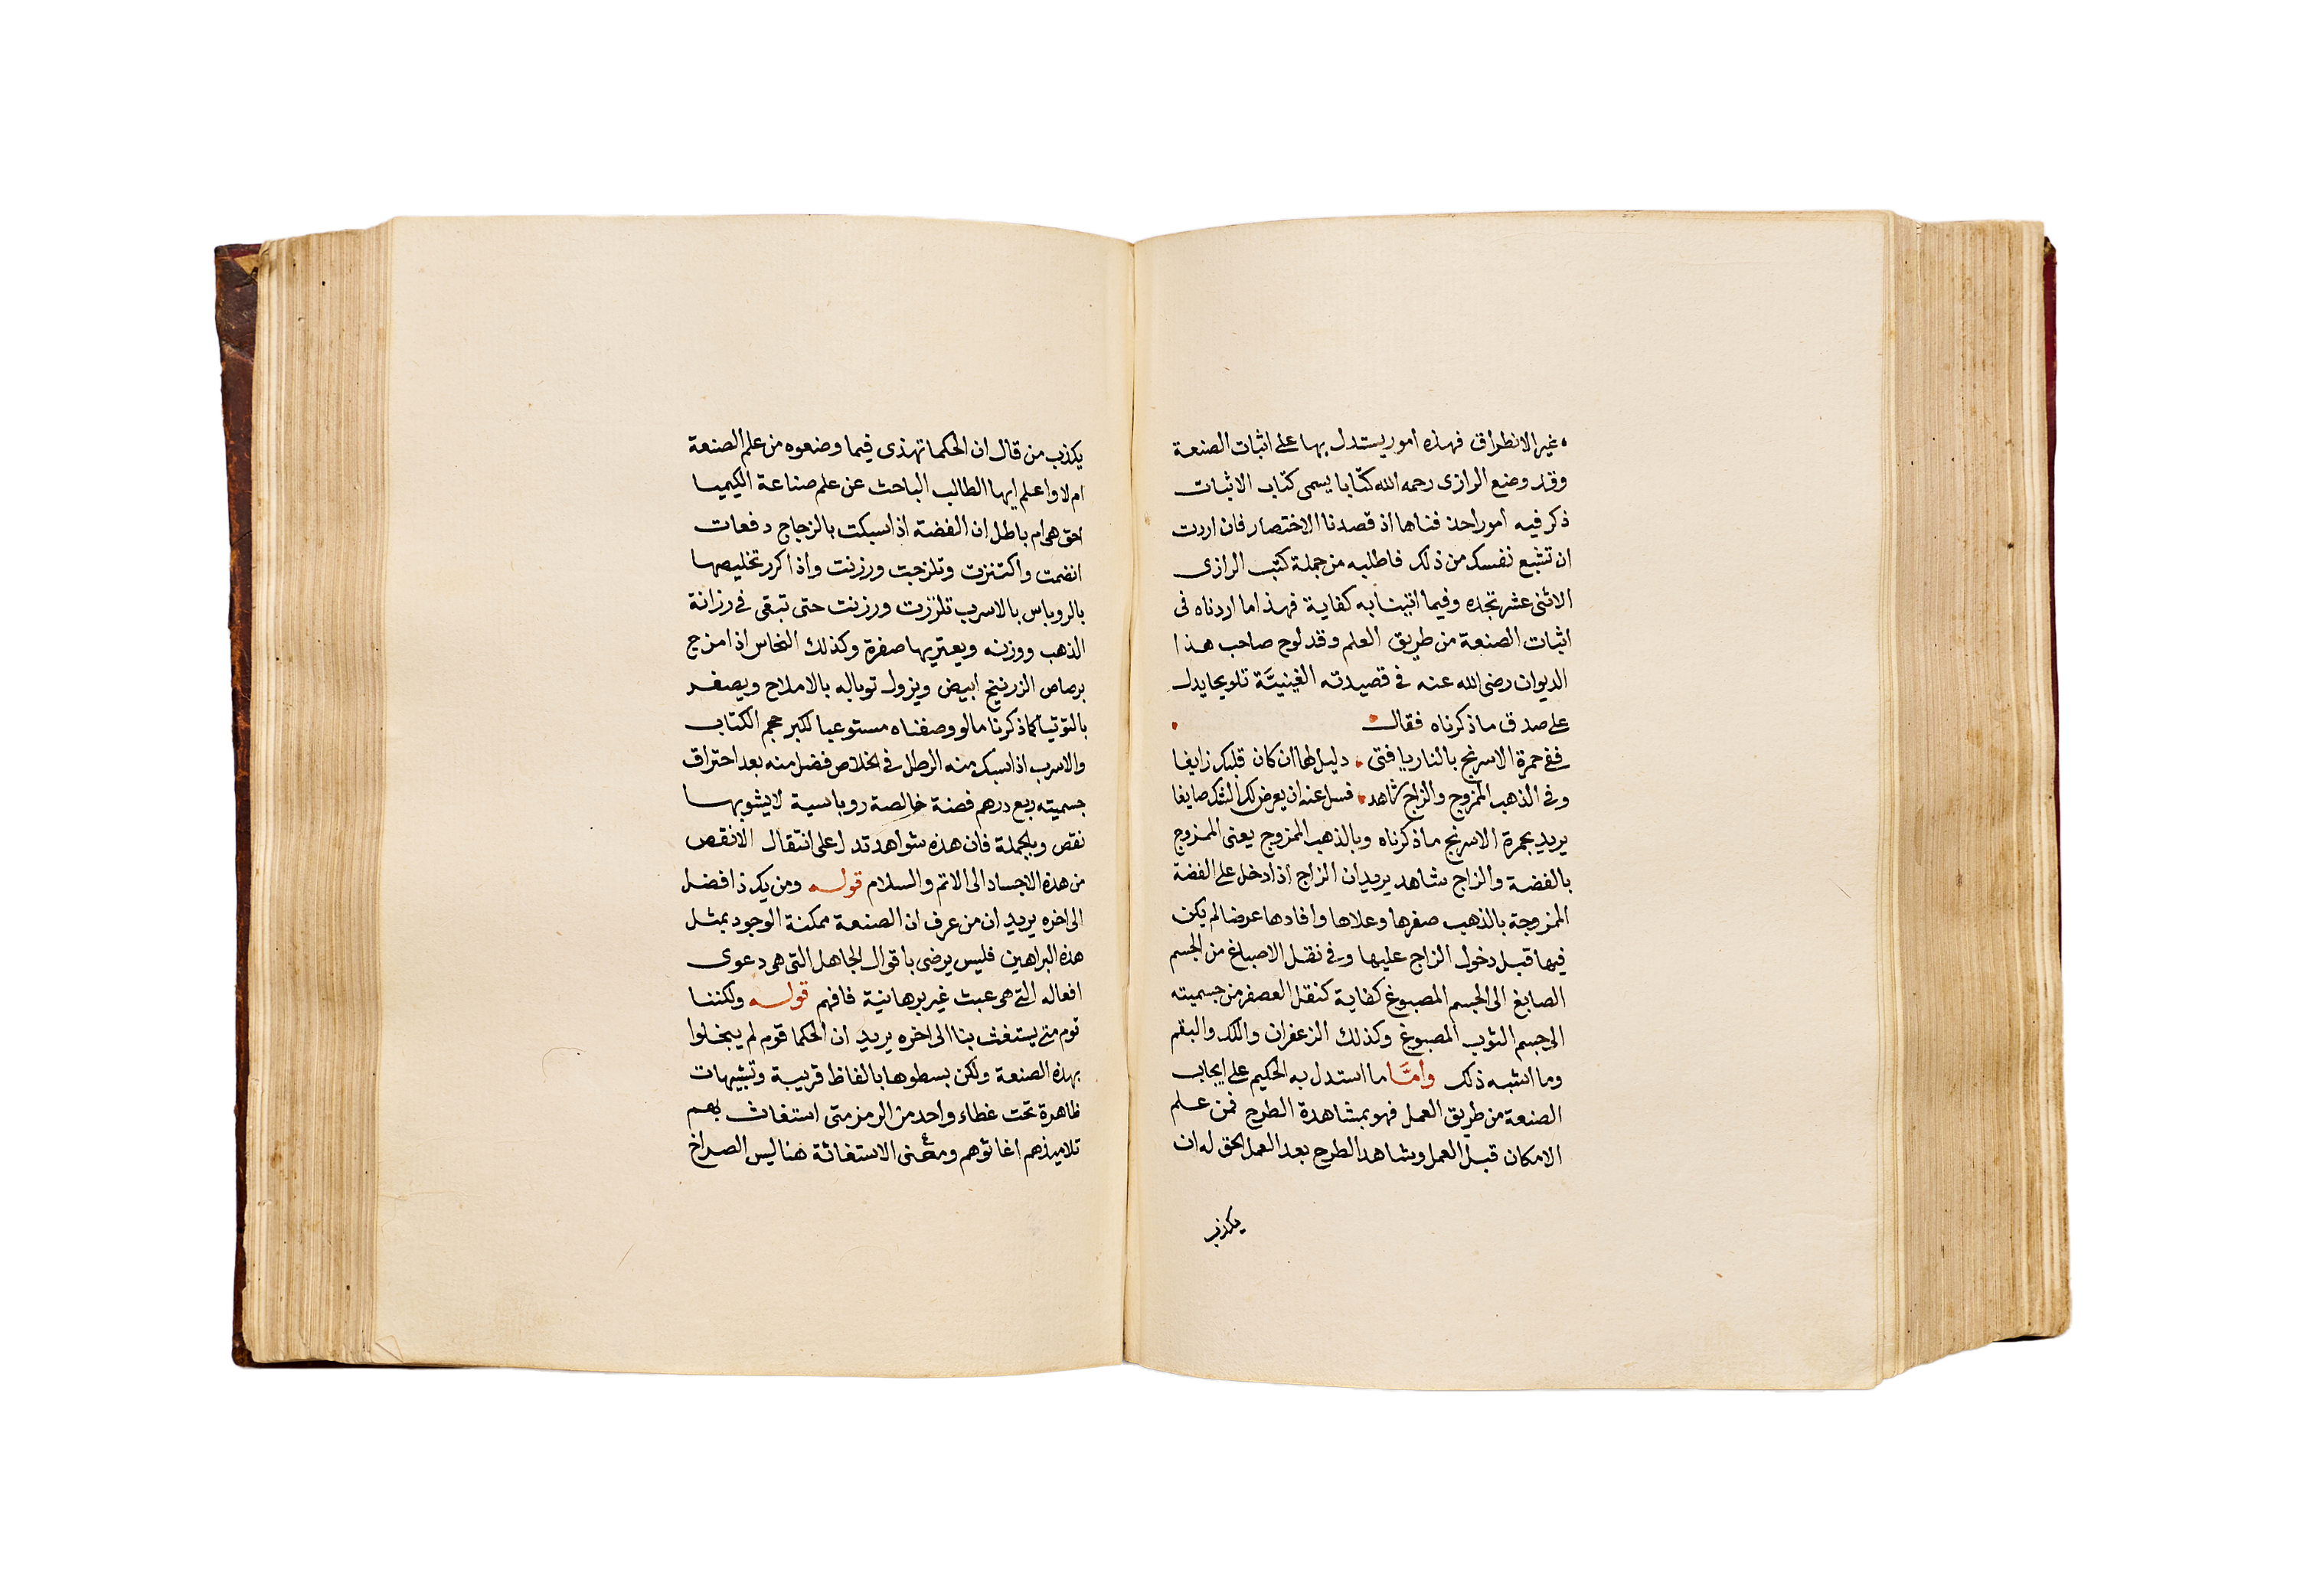 غير الانطراق فهذه امور يستدل بها على اثبات الصنعة
وقد وضع الرازى رحمه الله كتابا يسمى كتاب الاثبات
ذكر فيه امورا حذفناها اذ قصدنا الاختصار فان اردت
ان تشبع نفسك من ذلك فاطلبه من جملة كتب الرازى
الاثنى عشر تجده وفيما اتينا به كفاية فهذا ما اردناه فى
اثبات الصنعة من طريق العلم وقد لوح صاحب هذا
الديوان رضى الله عنه فى قصيدته الغينيَّة تلويحا يدل
على صدق ما ذكرناه فقال
ففى حمرة الاسرنج بالنار يا فتى دليل لها ان كان قلبك زايغا
وفى الذهب الممزوج والزاج شاهد فسل عنه ان يعرض لك الشك صايغا
يريد بحمرة الاسرنج ما ذكرناه وبالذهب الممزوج يعنى الممزوج
بالفضة والزاج شاهد يريد ان الزاج اذا دخل على الفضة
الممزوجة بالذهب صفرها وعلاها وافادها عرضا لم يكن
فيها قبل دخول الزاج عليها وفى نقل الاصباغ من الجسم
الصابغ الى الجسم المصبوغ كفاية كنقل العصفر من جسميته
الى جسم الثوب المصبوغ وكذلك الزعفران واللك والبقم
وما اشبه ذلك وامَّا ما استدل به الحكيم على ايجاب
الصنعة من طريق العمل فهو بمشاهدة الطرح فمن علم
الامكان قبل العمل وشاهد الطرح بعد العمل الحق له ان
يكذب
يكذب من قال ان الحكما تهذى فيما وضعوه من علم الصنعة
ام لا واعلم ايها الطالب الباحث عن علم صناعة الكيميا
احق هى ام باطل ان الفضة اذا سبكت بالزجاج دفعات
انضمت واكتنزت وتلزجت ورزنت واذا كرر تخليصها
بالروباس بالاسرب تلززت ورزنت حتى تبقى فى رزانة
الذهب ووزنه ويعتريها صفرة وكذلك النحاس اذا مزج
برصاص الزرنيخ ابيض ويزول توباله بالاملاح ويصفر
بالتوتيا كما ذكرنا ما لو وصفناه مستوعبا لكبر حجم الكتاب
والاسرب اذا سبك منه الرطل فى الخلاص فضل منه بعد احتراق
جسميته ربع درهم فضة خالصة روباسية لا يشوبها
نقص وبالجملة فان هذه شواهد تدل على انتقال الانقص
من هذه الاجساد الى الاتم والسلام قوله ومن يك ذا فضل
الى اخره يريد ان من عرف ان الصنعة ممكنة الوجود بمثل
هذه البراهين فليس يرضى باقوال الجاهل التى هى دعوى
افعاله التى هى عبث غير برهانية فافهم قوله ولكننا
قوم متى يستغث بنا الى اخره يريد ان الحكما قوم لم يبخلوا
بهذه الصنعة ولكن بسطوها بالفاظ قريبة وتشبيهات
ظاهرة تحت غطاء واحد من الرمز متى استغاث بهم
تلاميذهم اغاثوهم ومعنى الاستغاثة هنا ليس الصراخ